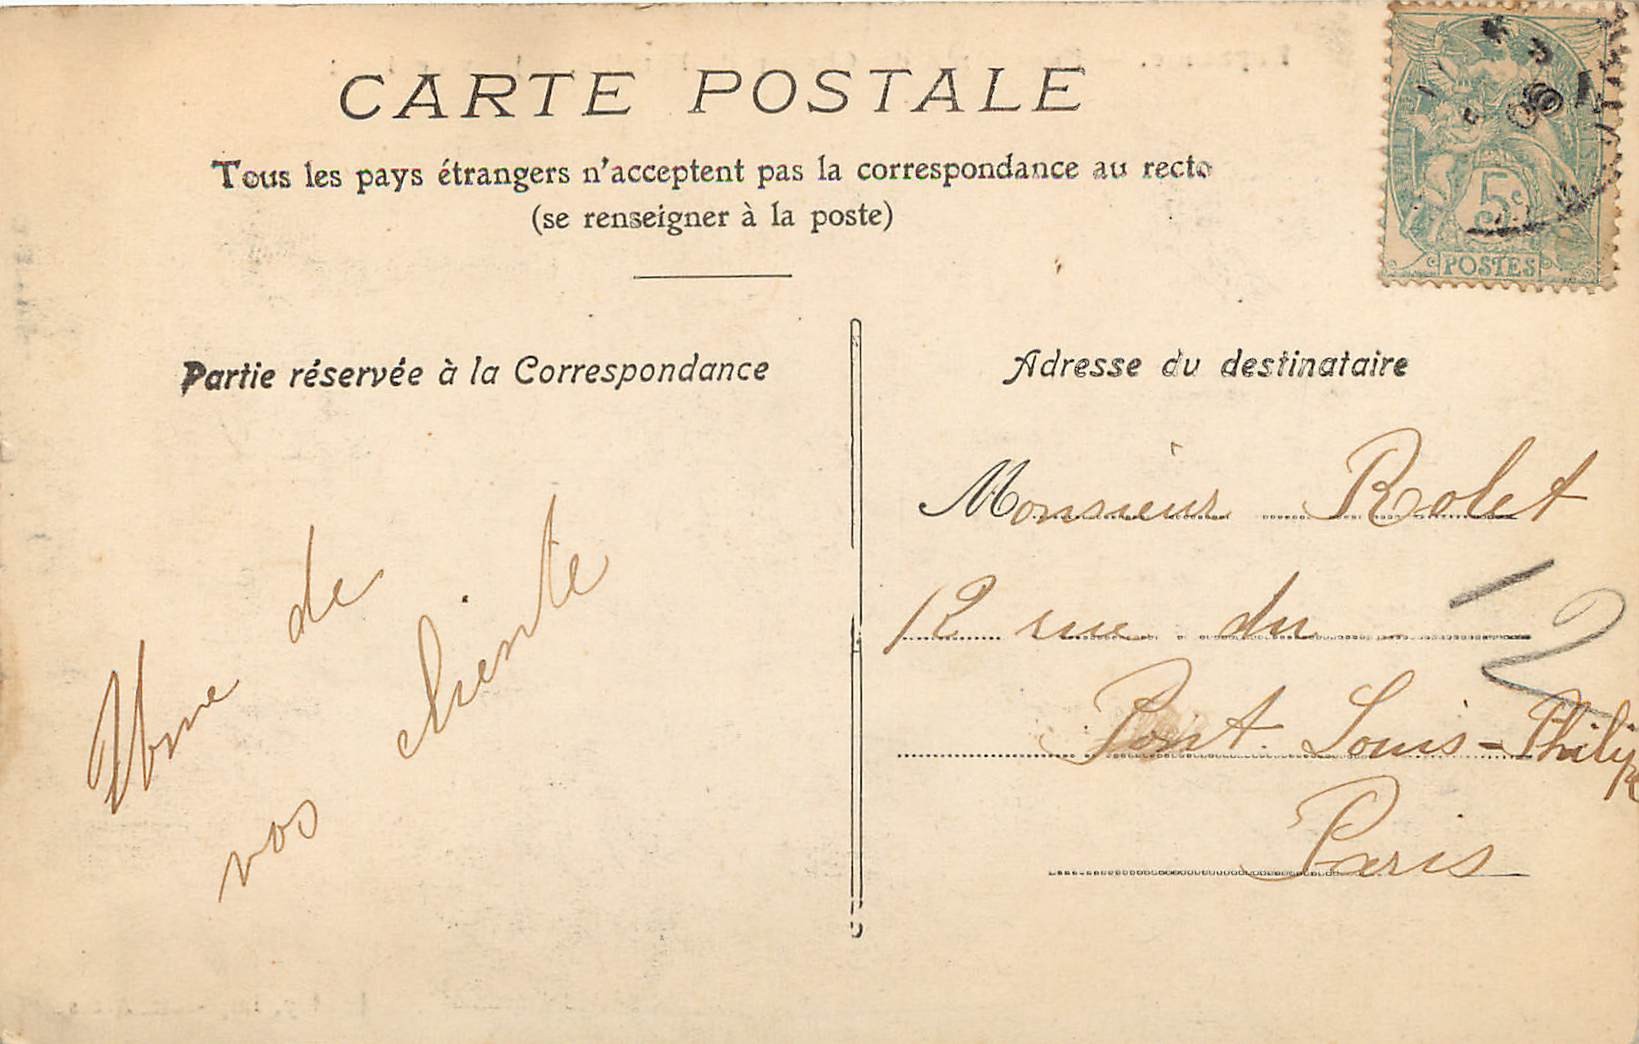 CARTE POSTALE
Tous les pays étrangers n'acceptent pas la correspondance au recto
(se renseigner à la poste)
5c
POSTES
06
Partie réservée à la Correspondance
Adresse du destinataire
Une de
vos cliente
Monsieur Rolet
12 rue du
Pont Louis-Philippe
Paris
12